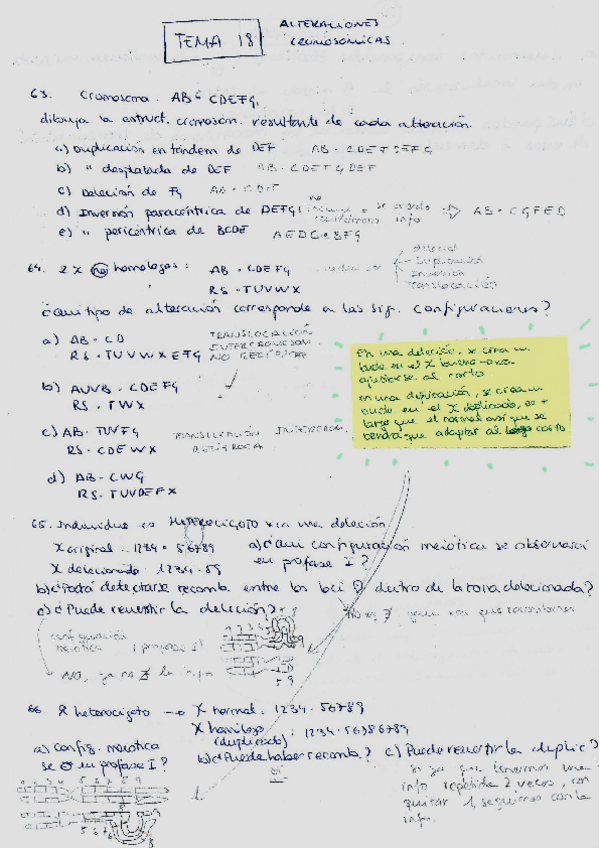 TEMA 18
ALTERACIONES
CROMOSÓMICAS
63. Cromosoma AB · CDEFG,
dibuja la estruct. cromosóm. resultante de cada alteración.
a) Duplicación en tándem de DEF AB · CDEFDEFG
b) " desplazada de DEF AB · CDEFGDEF
c) Deleción de FG AB · CDE
d) Inversión paracéntrica de DEFG no se info AB · CGFED
e) " pericéntrica de BCDE AEDC · BFG
64. 2 X no homólogos: AB · CDEFG
RS · TUVWX
deleción
duplicación
inversión
translocación
¿Qué tipo de alteración corresponde a las sig. configuraciones?
a) AB · CD
RS · TUVWXEFG
TRANSLOCACIÓN
INTERCROMOSOM.
NO RECÍPROCA
b) AUVB · CDEFG
RS · TWX
c) AB · TUVFG
RS · CDEWX
TRANSLOCACIÓN INTERCROM.
RECÍPROCA
d) AB · CWG
RS · TUVDEFX
En una deleción, se crea un
bucle en el X bueno para
ajustarse al corto
en una duplicación, se crea un
bucle en el X duplicado, es +
largo que el normal así que se
tendrá que adaptar al corto
65. Individuo es HETEROCIGOTO para una deleción
X original: 1234 · 56789
X delecionado: 1234 · 59
a) ¿Qué configuración meiótica se observará
en profase I?
b) ¿Podrá detectarse recomb. entre los loci dentro de la zona delecionada?
c) ¿Puede revertir la deleción?
No, ya no la info
configuración
meiótica (profase I)
66. heterocigoto → X normal: 1234 · 56789
X homólogo
(duplicado): 1234 · 56786789
a) Config. meiótica
se en profase I?
b) ¿Puede haber recomb.?
Sí
c) ¿Puede revertir la duplic?
Sí ya que tenemos una
info repetida 2 veces, con
quitar 1, seguimos con la
info.